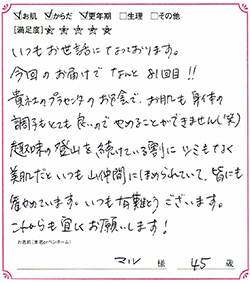 ☑お肌 ☑からだ ☑更年期 □生理 □その他
[満足度] ☆☆☆☆☆
いつもお世話になっております。
今回のお届けでなんと81回目!!
貴社のプラセンタのお陰で、お肌も身体の
調子もとても良いのでやめることができません(笑)
趣味の登山を続けている割にシミもなく
美肌だといつも山仲間にほめられていて、皆にも
奨めています。いつも有難うございます。
これからも宜しくお願いします!
お名前(本名orペンネーム)
マル 様 45 歳